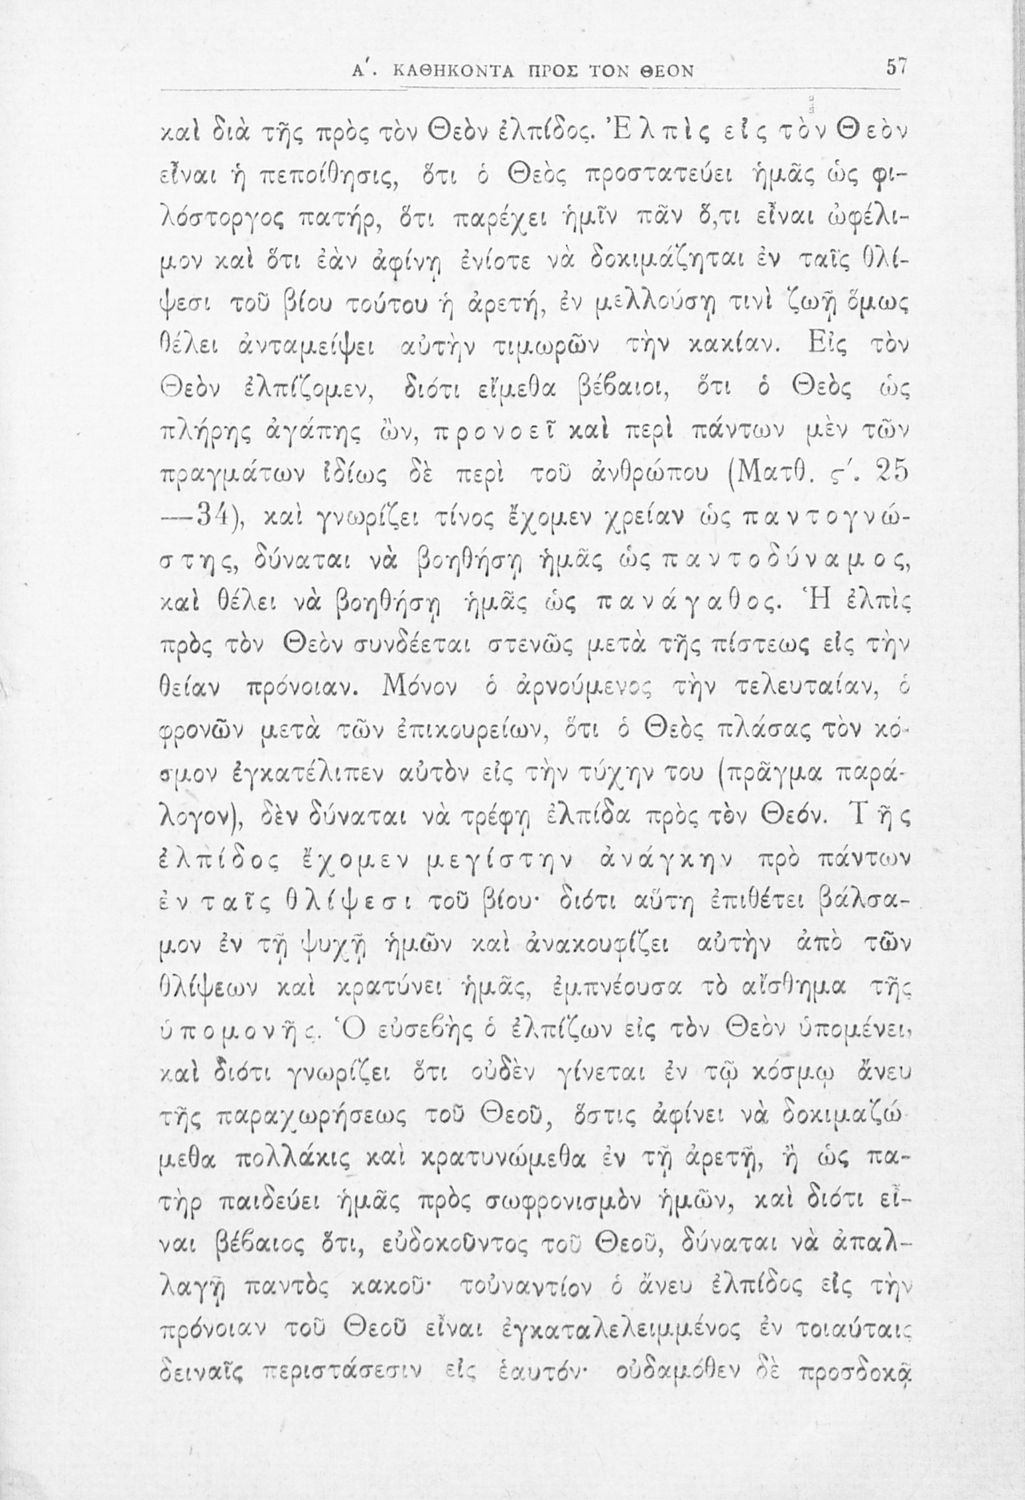 Α΄. ΚΑΘΗΚΟΝΤΑ ΠΡΟΣ ΤΟΝ ΘΕΟΝ 57
καὶ διὰ τῆς πρὸς τὸν Θεὸν ἐλπίδος. Ἐλπὶς εἰς τὸν Θεὸν
εἶναι ἡ πεποίθησις, ὅτι ὁ Θεὸς προστατεύει ἡμᾶς ὡς φι-
λόστοργος πατήρ, ὅτι παρέχει ἡμῖν πᾶν ὅ,τι εἶναι ὠφέλι-
μον καὶ ὅτι ἐὰν ἀφίνῃ ἐνίοτε νὰ δοκιμάζηται ἐν ταῖς θλί-
ψεσι τοῦ βίου τούτου ἡ ἀρετή, ἐν μελλούσῃ τινὶ ζωῇ ὅμως
θέλει ἀνταμείψει αὐτὴν τιμωρῶν τὴν κακίαν. Εἰς τὸν
Θεὸν ἐλπίζομεν, διότι εἴμεθα βέβαιοι, ὅτι ὁ Θεὸς ὡς
πλήρης ἀγάπης ὢν, προνοεῖ καὶ περὶ πάντων μὲν τῶν
πραγμάτων ἰδίως δὲ περὶ τοῦ ἀνθρώπου (Ματθ. ς΄. 25
—34), καὶ γνωρίζει τίνος ἔχομεν χρείαν ὡς παντογνώ-
στης, δύναται νὰ βοηθήσῃ ἡμᾶς ὡς παντοδύναμος,
καὶ θέλει νὰ βοηθήσῃ ἡμᾶς ὡς πανάγαθος. Ἡ ἐλπὶς
πρὸς τὸν Θεὸν συνδέεται στενῶς μετὰ τῆς πίστεως εἰς τὴν
θείαν πρόνοιαν. Μόνον ὁ ἀρνούμενος τὴν τελευταίαν, ὁ
φρονῶν μετὰ τῶν ἐπικουρείων, ὅτι ὁ Θεὸς πλάσας τὸν κό-
σμον ἐγκατέλιπεν αὐτὸν εἰς τὴν τύχην του (πρᾶγμα παρά-
λογον), δὲν δύναται νὰ τρέφῃ ἐλπίδα πρὸς τὸν Θεόν. Τῆς
ἐλπίδος ἔχομεν μεγίστην ἀνάγκην πρὸ πάντων
ἐν ταῖς θλίψεσι τοῦ βίου· διότι αὕτη ἐπιθέτει βάλσα-
μον ἐν τῇ ψυχῇ ἡμῶν καὶ ἀνακουφίζει αὐτὴν ἀπὸ τῶν
θλίψεων καὶ κρατύνει ἡμᾶς, ἐμπνέουσα τὸ αἴσθημα τῆς
ὑπομονῆς. Ὁ εὐσεβὴς ὁ ἐλπίζων εἰς τὸν Θεὸν ὑπομένει,
καὶ διότι γνωρίζει ὅτι οὐδὲν γίνεται ἐν τῷ κόσμῳ ἄνευ
τῆς παραχωρήσεως τοῦ Θεοῦ, ὅστις ἀφίνει νὰ δοκιμαζώ-
μεθα πολλάκις καὶ κρατυνώμεθα ἐν τῇ ἀρετῇ, ἢ ὡς πα-
τὴρ παιδεύει ἡμᾶς πρὸς σωφρονισμὸν ἡμῶν, καὶ διότι εἶ-
ναι βέβαιος ὅτι, εὐδοκοῦντος τοῦ Θεοῦ, δύναται νὰ ἀπαλ-
λαγῇ παντὸς κακοῦ· τοὐναντίον ὁ ἄνευ ἐλπίδος εἰς τὴν
πρόνοιαν τοῦ Θεοῦ εἶναι ἐγκαταλελειμμένος ἐν τοιαύταις
δειναῖς περιστάσεσιν εἰς ἑαυτόν· οὐδαμόθεν δὲ προσδοκᾷ